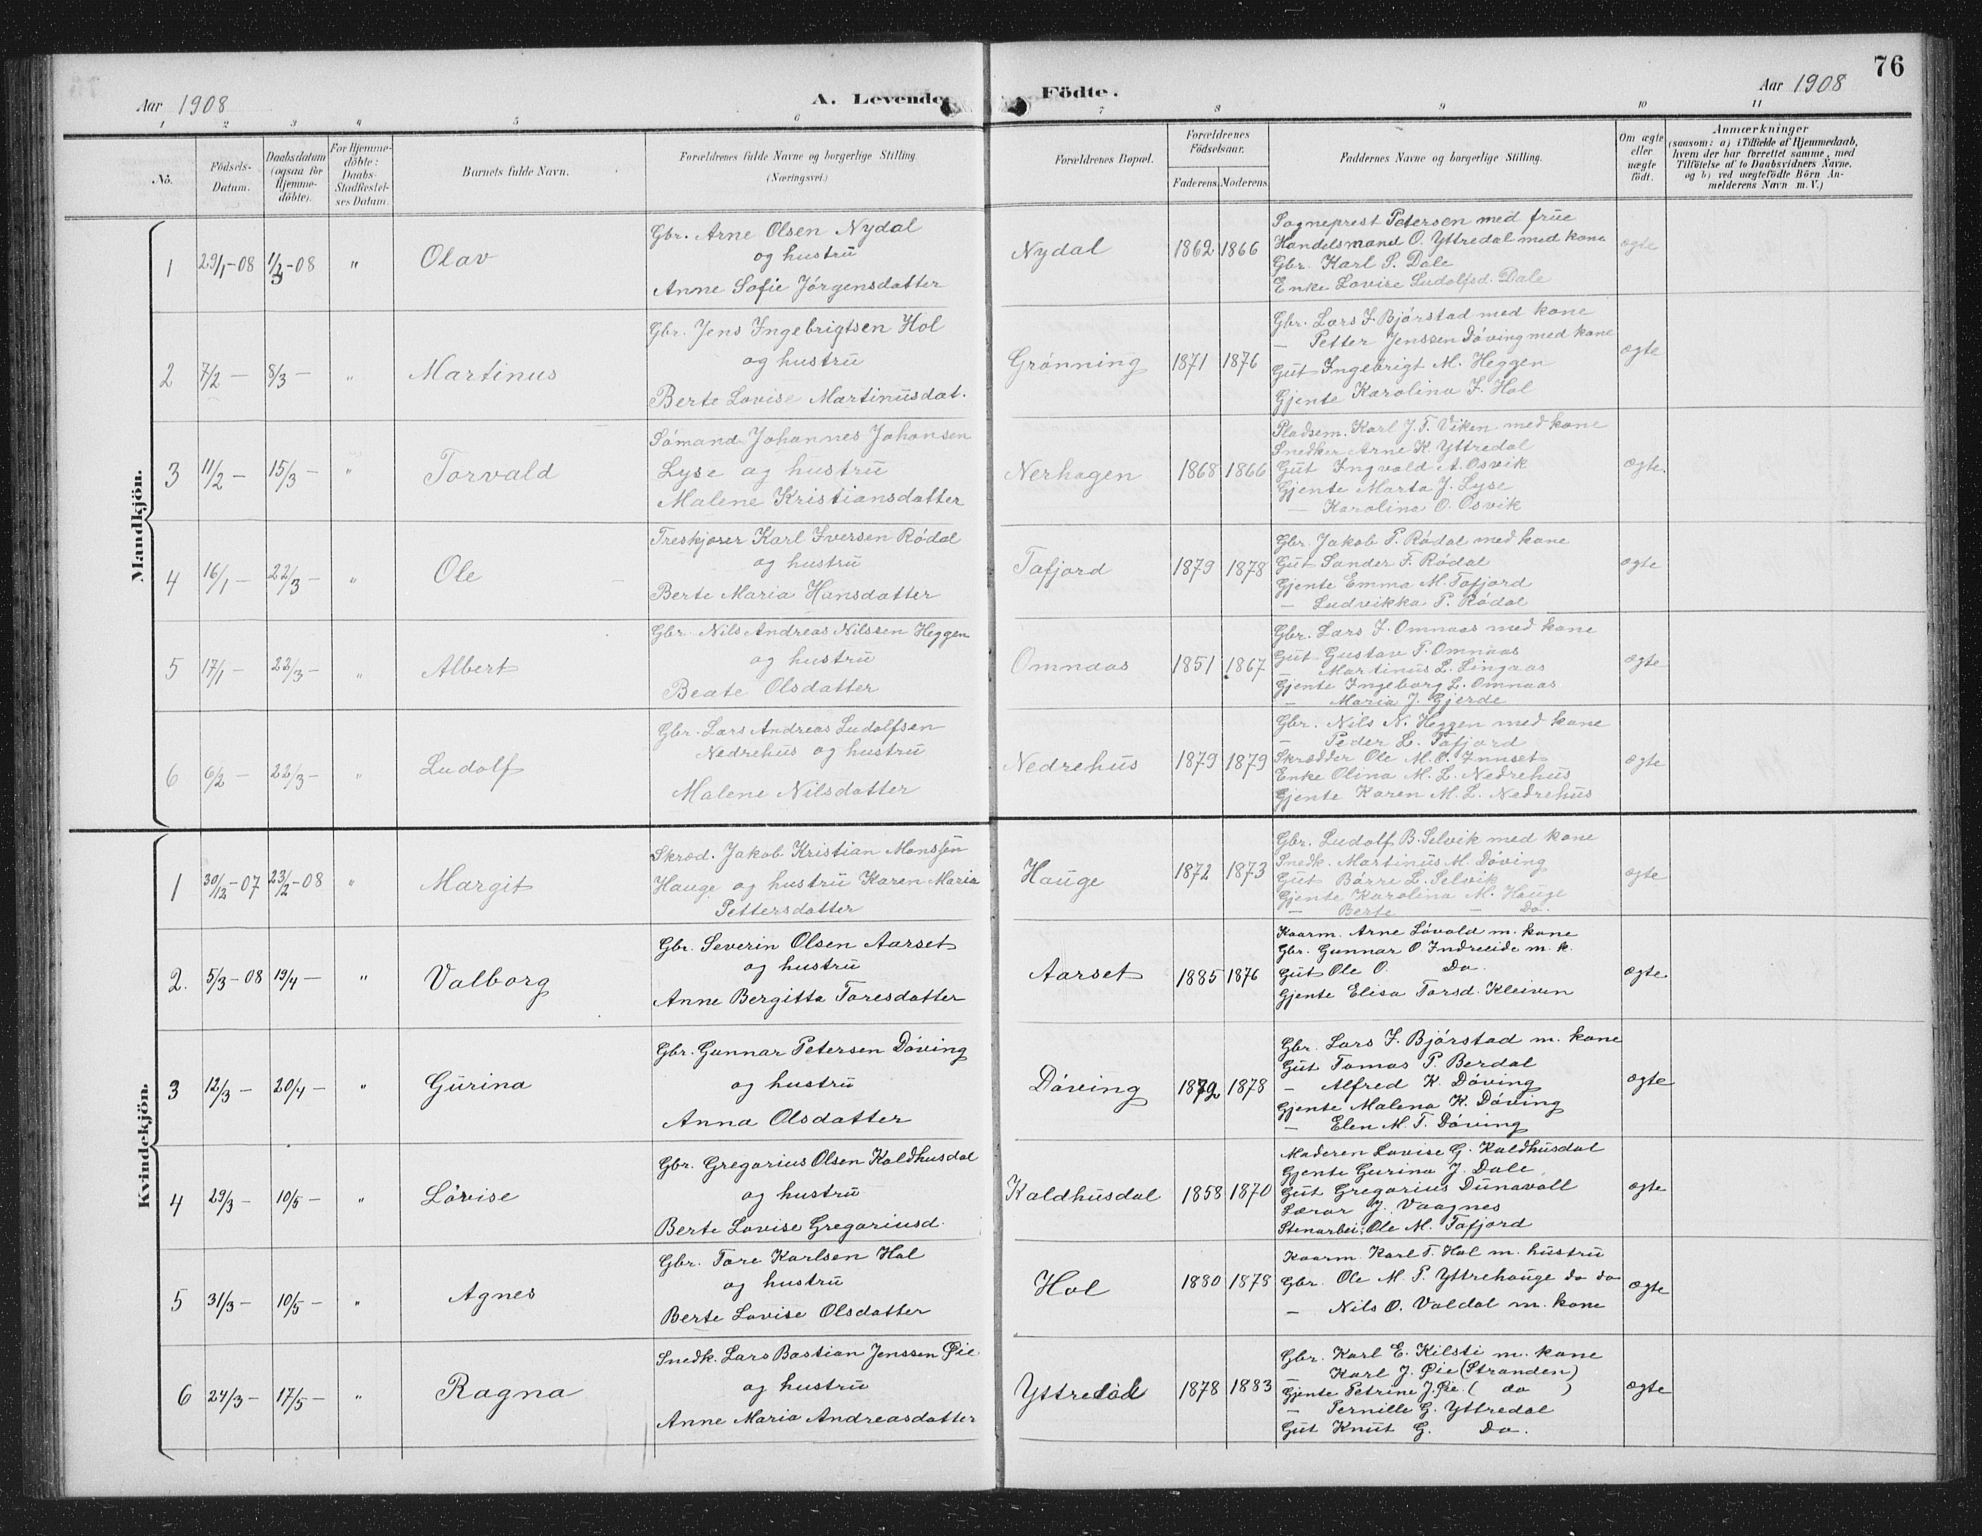 Aar 1908
A. Levende Födte.
Aar 1908
76
1 2 3 4 5 6 7 8 9 10 11
No.
Födsels-Datum.
Daabsdatum (ogsaa for Hjemmedöbte).
For Hjemmedöbte: Daabs-Stadfæstelses Datum.
Barnets fulde Navn.
Forældrenes fulde Navne og borgerlige Stilling (Næringsvei.)
Forældrenes Bopæl.
Forældrenes Födselsaar.
Faderens. Moderens.
Faddernes Navne og borgerlige Stilling.
Om ægte eller uægte födt.
Anmærkninger
(saasom: a) i Tilfælde af Hjemmedaab, hvem der har forrettet samme, med Tilföielse af to Daabsvidners Navne, og b) ved uægtefödte Börn Anmelderens Navn m. V.)
Mandkjön.
1 29/1-08 1/3-08 " Olav
Gbr. Arne Olsen Nydal
og hustru
Anne Sofie Jörgensdatter
Nydal 1862 1866
Sogneprest Petersen med frue
Handelsmand O. Yttredal med kone
Gbr. Karl P. Dale
Enke Lovise Ludolfsd. Dale
ægte
2 7/2 - 8/3 - " Martinus
Gbr. Jens Ingebrigtsen Hol
og hustru
Berte Lovise Martinusdat.
Grönning 1871 1876
Gbr. Lars I. Bjórstad med kone
— Petter Jenssen Dóving med kone
Gut Ingebrigt M. Heggen
Gjente Karolina I. Hol
ægte
3 11/2 - 15/3 - " Torvald
Sómand Johannes Johansen
Lyse og hustru
Malene Kristiansdatter
Nerhagen 1868 1866
Pladsem. Karl J. T. Viken med kone
Snedker Arne K. Yttredal
Gut Ingvald A. Osvik
Gjente Marta J. Lyse
— Karolina O. Osvik
ægte.
4 16/1 - 22/3 - " Ole
Treskjærer Karl Iversen Ródal
og hustru
Berte Maria Hansdatter
Tafjord 1879 1878
Gbr. Jakob P. Ródal med kone
Gut Sander F. Ródal
Gjente Emma M. Tafjord
— Ludvikka P. Ródal
ægte
5 17/1 - 22/3 - " Albert
Gbr. Nils Andreas Nilssen Heggen
og hustru
Beate Olsdatter
Omnaas 1851 1867
Gbr. Lars J. Omnaas med kone
Gut Gustav P. Omnaas
— Martinus L. Lingaas
Gjente Ingeborg L. Omnaas
— Maria J. Gjerde
ægte
6 6/2 - 22/3 - " Ludolf
Gbr. Lars Andreas Ludolfsen
Nedrehus og hustru
Malene Nilsdatter
Nedrehus 1879 1879
Gbr. Nils N. Heggen med kone
— Peder L. Tafjord
Skrædder Ole M. E. Innset
Enke Olina M. L. Nedrehus
Gjente Karen M. L. Nedrehus
ægte
Kvindekjön.
1 30/12-07 23/2-08 " Margit
Skræd. Jakob Kristian Monssen
Hauge og hustru Karen Maria
Pettersdatter
Hauge 1872 1873
Gbr. Ludolf B. Selvik med kone
Snedk. Martinus M. Dóving
Gut Bórre L. Selvik
Gjente Karolina M. Hauge
— Berte — Do.
ægte
2. 5/3-08 19/4 - " Valborg
Gbr. Severin Olsen Aarset
og hustru
Anne Bergitta Toresdatter
Aarset 1885 1876
Kaarm. Arne Lóvold m. kone
Gbr. Gunnar O. Indreeide m. k.
Gut Ole O. Do.
Gjente Elisa Torsd. Kleiven
ægte
3 12/3 - 20/4 - " Gurina
Gbr. Gunnar Petersen Dóving
og hustru
Anna Olsdatter
Dóving 1879 1878
Gbr. Lars I. Bjórstad m. kone
Gut Tomas P. Berdal
— Alfred K. Dóving
Gjente Malena K. Dóving
— Elen M. T. Dóving
ægte
4 29/3 - 10/5 - " Lóvise
Gbr. Gregorius Olsen Kaldhusdal
og hustru
Berte Lovise Gregoriusd.
Kaldhusdal 1858 1870
Moderen Lovise G. Kaldhusdal
Gjente Gurina J. Dale
Gut Gregorius Dunavoll
Lærer J. Vaagnes
Stenarbei. Ole M. Tafjord
ægte
5 31/3 - 10/5 - " Agnes
Gbr. Tore Karlsen Hol
og hustru
Berte Lovise Olsdatter
Hol 1880 1878
Kaarm. Karl T. Hol m. hustru
Gbr. Ole M. P. Yttrehauge do do
— Nils O. Valdal m. kone
ægte
6 24/3 - 17/5 - " Ragna
Snedk. Lars Bastian Jenssen Øie
og hustru
Anne Maria Andreasdatter
Yttredal 1878 1883
Gbr. Karl E. Kilsti m. kone
— Karl J. Øie (Stranden)
Gjente Petrine J. Øie ( do )
— Pernille G. Yttredal
Gut Knut G. Do.
ægte